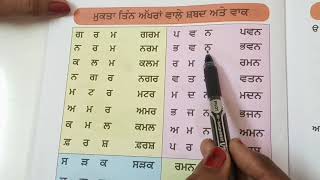 ਮੁਕਤਾ ਤਿੰਨ ਅੱਖਰਾਂ ਵਾਲੇ ਸ਼ਬਦ ਅਤੇ ਵਾਕ
ਗ ਰ ਮ ਗਰਮ ਪ ਵ ਨ ਪਵਨ
ਨ ਰ ਮ ਨਰਮ ਭ ਵ ਨ ਭਵਨ
ਕ ਲ ਮ ਕਲਮ ਰ ਮ ਰਮਨ
ਨ ਗ ਰ ਨਗਰ ਵ ਤ ਵਤਨ
ਮ ਟ ਰ ਮਟਰ ਮ ਦ ਮਦਨ
ਅ ਮ ਰ ਅਮਰ ਭ ਜ ਨ ਭਜਨ
ਕ ਮ ਲ ਕਮਲ ਅ ਮ ਨ ਅਮਨ
ਫ਼ ਰ ਸ਼ ਫ਼ਰਸ਼ ਪ ਰ
ਸ ੜ ਕ ਸੜਕ ਰਮਨ